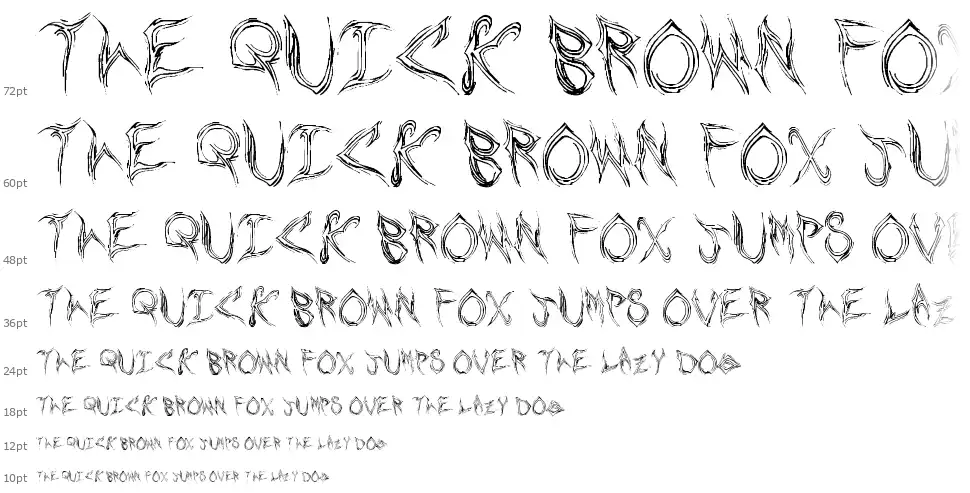 72pt THE QUICK BROWN FOX
60pt THE QUICK BROWN FOX JU
48pt THE QUICK BROWN FOX JUMPS OVE
36pt THE QUICK BROWN FOX JUMPS OVER THE LAZ
24pt THE QUICK BROWN FOX JUMPS OVER THE LAZY DOG
18pt THE QUICK BROWN FOX JUMPS OVER THE LAZY DOG
12pt THE QUICK BROWN FOX JUMPS OVER THE LAZY DOG
10pt THE QUICK BROWN FOX JUMPS OVER THE LAZY DOG